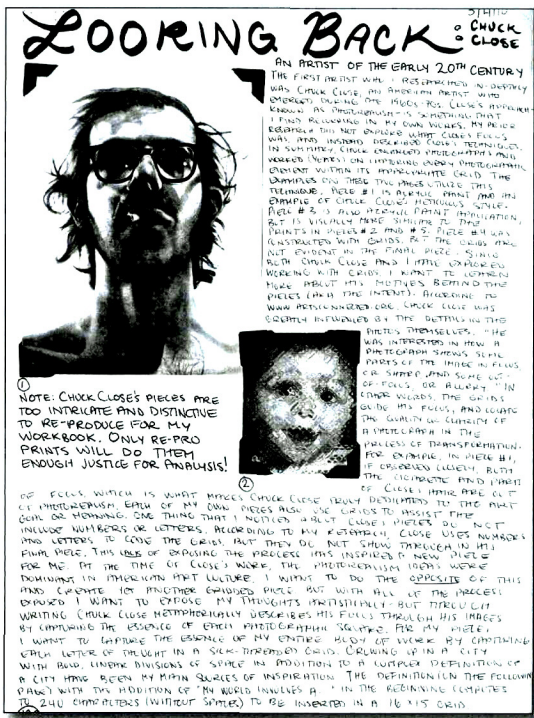 LOOKING BACK
CHUCK
CLOSE
AN ARTIST OF THE EARLY 20TH CENTURY
THE FIRST ARTIST WHO I RESEARCHED IN-DEPTHLY
WAS CHUCK CLOSE, AN AMERICAN ARTIST WHO
EMERGED DURING THE 1960S-70S. CLOSE'S APPROACH-
KNOWN AS PHOTOREALISM-IS SOMETHING THAT
I FIND RECURRING IN MY OWN WORKS. MY PRIOR
RESEARCH DID NOT EXPLORE WHAT CLOSE'S FOCUS
WAS, AND INSTEAD DESCRIBED CLOSE'S TECHNIQUES.
IN SUMMARY, CHUCK ENLARGED PHOTOGRAPHS AND
WORKED (YEARS) ON CAPTURING EVERY PHOTOGRAPHIC
ELEMENT WITHIN ITS APPROPRIATE GRID. THE
EXAMPLES ON THESE TWO PAGES UTILIZE THIS
TECHNIQUE. PIECE #1 IS ACRYLIC PAINT AND AN
EXAMPLE OF CHUCK CLOSE'S METICULOUS STYLE.
PIECE #3 IS ALSO ACRYLIC PAINT APPLICATION,
BUT IS VISUALLY MORE SIMILAR TO THE
PRINTS IN PIECES #2 AND #5. PIECE #4 WAS
CONSTRUCTED WITH GRIDS, BUT THE GRIDS ARE
NOT EVIDENT IN THE FINAL PIECE. SINCE
BOTH CHUCK CLOSE AND I HAVE EXPLORED
WORKING WITH GRIDS, I WANT TO LEARN
MORE ABOUT HIS MOTIVES BEHIND THE
PIECES (AKA THE INTENT). ACCORDING TO
CHUCK CLOSE WAS
GREATLY INFLUENCED BY THE DETAILS IN THE
PHOTOS THEMSELVES. "HE
WAS INTERESTED IN HOW A
PHOTOGRAPH SHOWS SOME
PARTS OF THE IMAGE IN FOCUS,
OR SHARP, AND SOME OUT-
OF-FOCUS, OR BLURRY." IN
OTHER WORDS, THE GRIDS
GUIDE HIS FOCUS, AND LOCATE
THE QUALITY OF CLARITY OF
A PHOTOGRAPH IN THE
PROCESS OF TRANSFORMATION.
FOR EXAMPLE, IN PIECE #1,
IF OBSERVED CLOSELY, BOTH
THE CIGARETTE AND PARTS
OF CLOSE'S HAIR ARE OUT
①
NOTE: CHUCK CLOSE'S PIECES ARE
TOO INTRICATE AND DISTINCTIVE
TO RE-PRODUCE FOR MY
WORKBOOK. ONLY RE-PRO
PRINTS WILL DO THEM
ENOUGH JUSTICE FOR ANALYSIS!
②
OF FOCUS, WHICH IS WHAT MAKES CHUCK CLOSE TRULY DEDICATED TO THE ART
OF PHOTOREALISM. EACH OF MY OWN PIECES ALSO USE GRIDS TO ASSIST THE
GOAL OR MEANING. ONE THING THAT I NOTICED ABOUT CLOSE'S PIECES DO NOT
INCLUDE NUMBERS OR LETTERS. ACCORDING TO MY RESEARCH, CLOSE USES NUMBERS
AND LETTERS TO CODE THE GRIDS, BUT THEY DO NOT SHOW THROUGH IN HIS
FINAL PIECE. THIS LACK OF EXPOSING THE PROCESS HAS INSPIRED A NEW PIECE
FOR ME. AT THE TIME OF CLOSE'S WORK, THE PHOTOREALISM IDEAS WERE
DOMINANT IN AMERICAN ART CULTURE. I WANT TO DO THE OPPOSITE OF THIS
AND CREATE YET ANOTHER GRIDDED PIECE BUT WITH ALL OF THE PROCESS
EXPOSED. I WANT TO EXPOSE MY THOUGHTS ARTISTICALLY-BUT THROUGH
WRITING. CHUCK CLOSE METAPHORICALLY DESCRIBES HIS FOCUS THROUGH HIS IMAGES
BY CAPTURING THE ESSENCE OF EACH PHOTOGRAPHIC SQUARE. FOR MY PIECE,
I WANT TO CAPTURE THE ESSENCE OF MY ENTIRE BODY OF WORK BY CAPTURING
EACH LETTER OF THOUGHT IN A GRID. GROWING UP IN A CITY
WITH BOLD, LINEAR DIVISIONS OF SPACE IN ADDITION TO A COMPLEX DEFINITION OF
A CITY HAVE BEEN MY MAIN SOURCES OF INSPIRATION. THE DEFINITION (ON THE FOLLOWING
PAGE) WITH THE ADDITION OF "MY WORLD INVOLVES A..." IN THE BEGINNING COMPUTES
TO 240 CHARACTERS (WITHOUT SPACES) TO BE INSERTED IN A 16 X 15 GRID